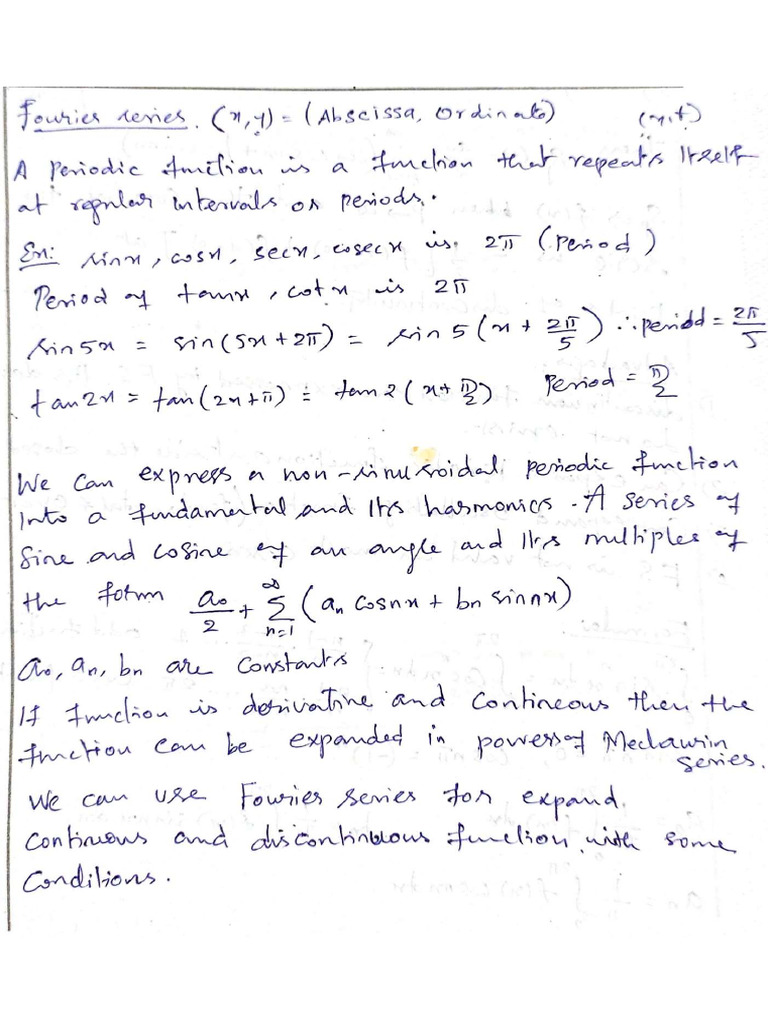 Fourier series. (x,y) = (Abscissa, Ordinate) (x,t)
A Periodic function is a function that repeats Itself
at regular Intervals or periods.
Ex: sinx, cosx, secx, cosecx is 2π (Period)
Period of tanx, cotx is 2π
sin5x = sin(5x+2π) = sin 5(x + 2π/5) ∴ period = 2π/5
tan2x = tan(2x+π) = tan2(x+π/2) Period = π/2
We can express a non-sinusoidal periodic function
Into a fundamental and Its harmonics. A series of
Sine and cosine of an angle and Its multiples of
the form a₀/2 + ∞Σn=1 (an cosnx + bn sinnx)
a₀, an, bn are constants
If function is derivative and contineous then the
function can be expanded in powers of Meclaurin
Series.
We can use Fourier series for expand
continuous and discontinuous function with some
conditions.